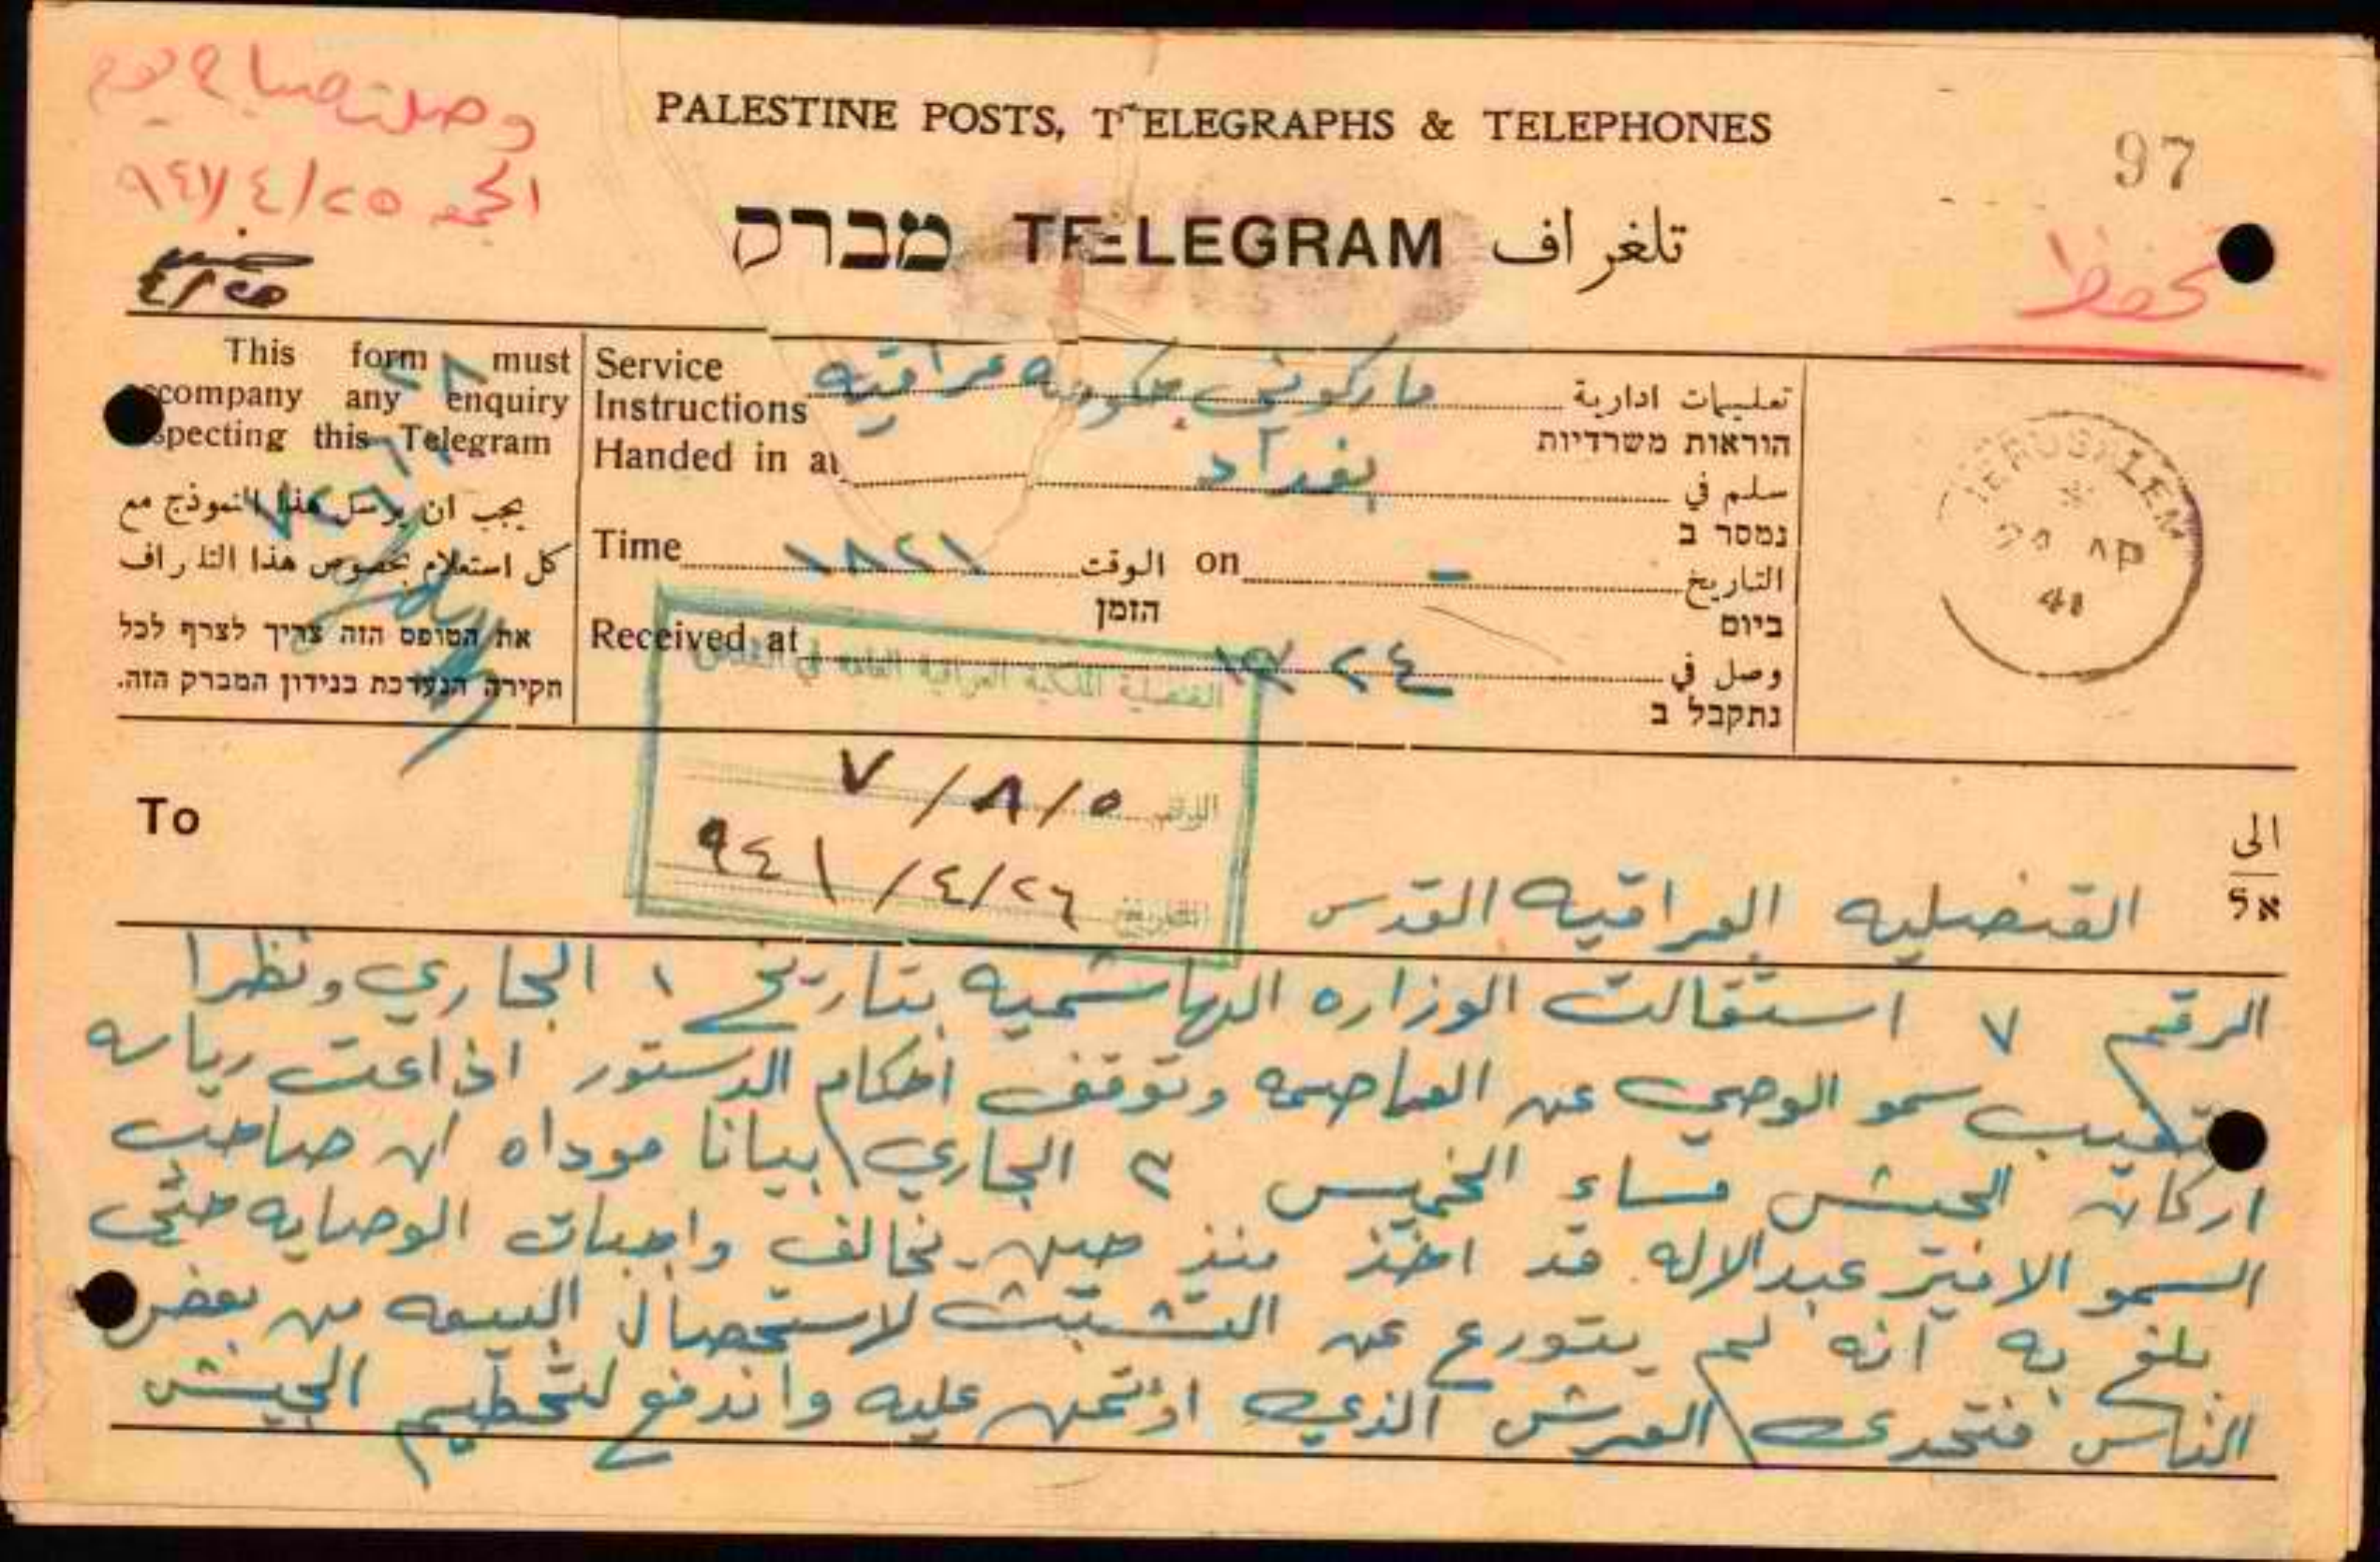 وصلت صباح يوم
الجمعه ٢٥/٤/٩٤١
٢٥/٤
PALESTINE POSTS, TELEGRAPHS & TELEPHONES
97
מברק TELEGRAM تلغراف
تحفظ
This form must
accompany any enquiry
respecting this Telegram
يجب ان يرسل هذا النموذج مع
كل استعلام بخصوص هذا التلغراف
את הטופס הזה צריך לצרף לכל
חקירה הנערכת בנידון המברק הזה.
Service
Instructions
ماركوني حكومه عراقيه
تعليمات ادارية
הוראות משרדיות
Handed in at
بغداد
سلم في
נמסר ב
Time ١٨٢١ الوقت on - التاريخ
הזמן
ביום
Received at
٢٤
وصل في
נתקבל ב
JERUSALEM
24 AP
41
القنصلية الملكية العراقية العامة في القدس
الرقم ٧/٨/٥
التاريخ ٢٦/٤/٩٤١
To
الى
אל
القنصليه العراقيه القدس
الرقم ٧ استقالت الوزاره الهاشميه بتاريخ ١ الجاري ونظرا
لتغيب سمو الوصي عن العاصمه وتوقف احكام الدستور اذاعت رياسه
اركان الجيش مساء الخميس ٣ الجاري بيانا موداه ان صاحب
السمو الامير عبدالاله قد اخذ منذ حين يخالف واجبات الوصايه حتى
بلغ به انه لم يتورع عن التشبث لاستحصال البيعه من بعض
الناس فتحدى العرش الذي اؤتمن عليه واندفع لتحطيم الجيش